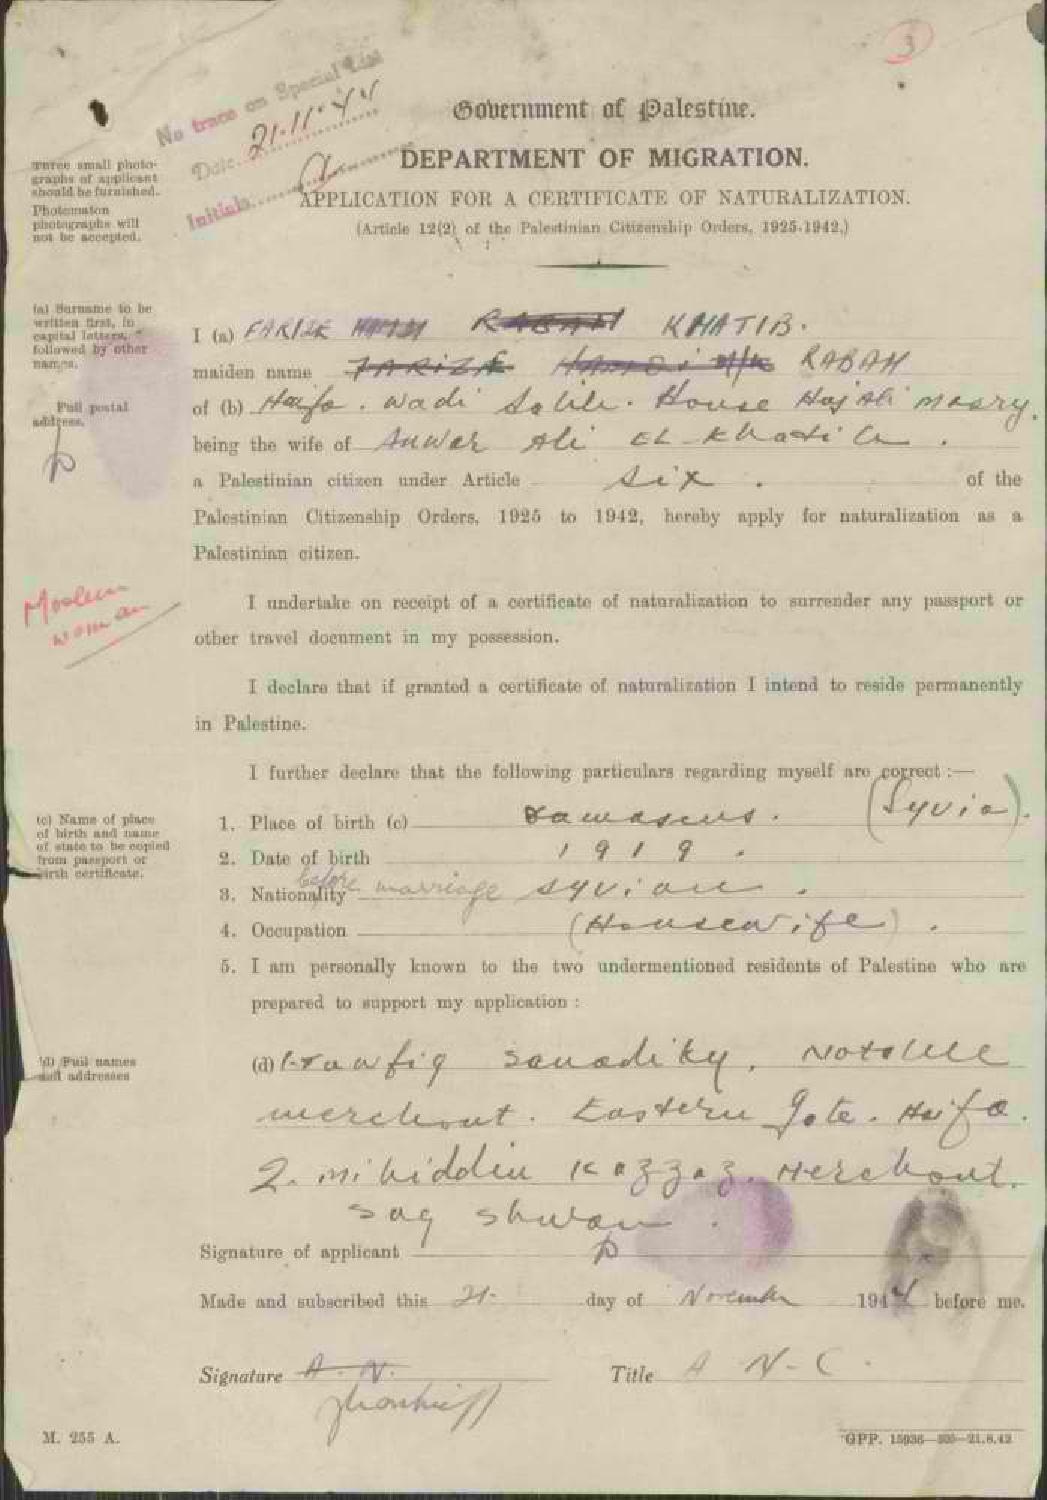 3
No trace on Special List
Date 21.11.44
Initials
Government of Palestine.
DEPARTMENT OF MIGRATION.
APPLICATION FOR A CERTIFICATE OF NATURALIZATION.
(Article 12(2) of the Palestinian Citizenship Orders, 1925-1942.)
Three small photo-
graphs of applicant
should be furnished.
Photomaton
photographs will
not be accepted.
(a) Surname to be
written first, in
capital letters,
followed by other
names.
I (a) FARIZE RABAH KHATIB.
maiden name FARIZE HAMDI RABAH
Full postal
address.
of (b) Haifa. Wadi Salib. House Haj Ali Masry.
being the wife of Anwar Ali El Khatib.
a Palestinian citizen under Article six. of the
Palestinian Citizenship Orders, 1925 to 1942, hereby apply for naturalization as a
Palestinian citizen.
Moslem
woman
I undertake on receipt of a certificate of naturalization to surrender any passport or
other travel document in my possession.
I declare that if granted a certificate of naturalization I intend to reside permanently
in Palestine.
I further declare that the following particulars regarding myself are correct :—
(c) Name of place
of birth and name
of state to be copied
from passport or
birth certificate.
1. Place of birth (c) Damascus. (Syria).
2. Date of birth 1919.
3. Nationality before marriage Syrian.
4. Occupation (Housewife).
5. I am personally known to the two undermentioned residents of Palestine who are
prepared to support my application :
(d) Full names
and addresses
(d) 1. Tawfiq Sanadiky, Notable
merchant. Eastern Gate. Haifa.
2. Mihiddin Kazzaz. Merchant.
Suq Shwam.
Signature of applicant
Made and subscribed this 21. day of November 1944 before me.
Signature A. N. Title A N. C.
M. 255 A.
GPP. 15936—500—21.8.42